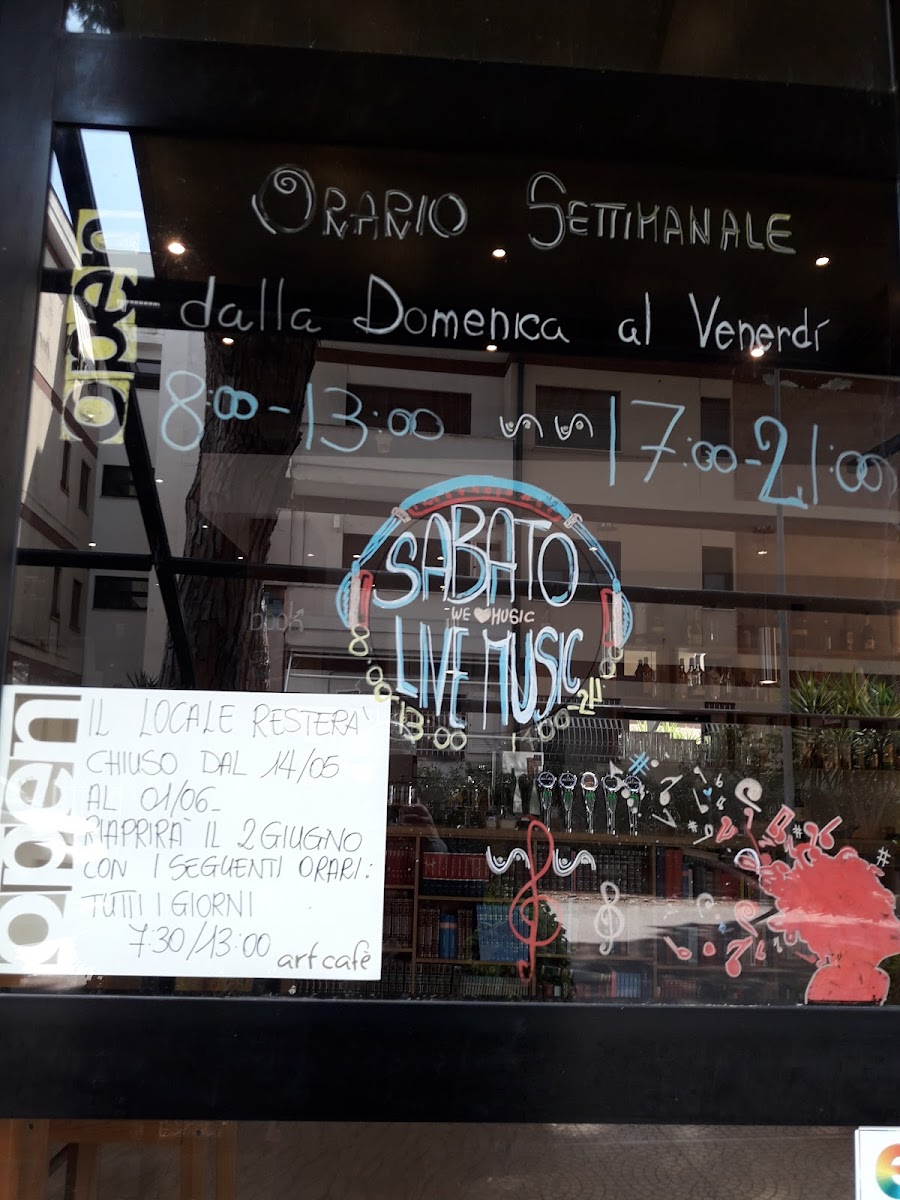 ORARIO SETTIMANALE
dalla Domenica al Venerdí
8:00-13:00 17:00-21:00
open
SABATO
WE MUSIC
LIVE MUSIC
8:00-13:00
book
open
IL LOCALE RESTERA'
CHIUSO DAL 14/05
AL 01/06-
RIAPRIRA' IL 2 GIUGNO
CON I SEGUENTI ORARI:
TUTTI I GIORNI
7:30/13:00
art cafè